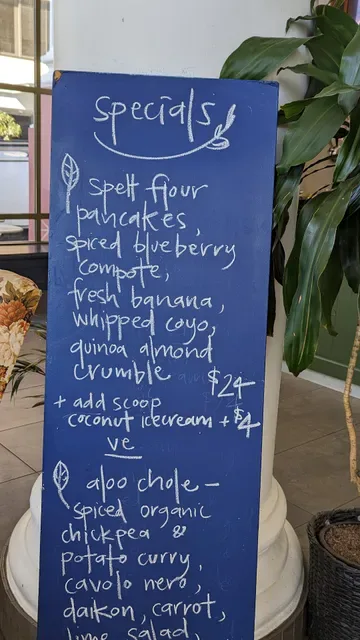 specials
spelt flour
pancakes,
spiced blueberry
compote,
fresh banana,
whipped coyo,
quinoa almond
crumble $24
+ add scoop
coconut icecream + $4
ve
aloo chole –
spiced organic
chickpea &
potato curry,
cavolo nero,
daikon, carrot,
lime salad